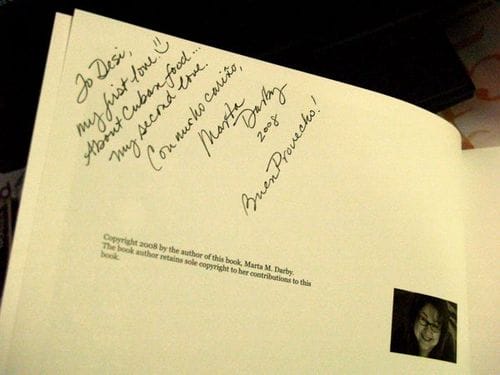 To Desi,
my first love.
About Cuban food...
my second love.
Con mucho cariño,
Marta
Darby
2008
Buen Provecho!
Copyright 2008 by the author of this book, Marta M. Darby.
The book author retains sole copyright to her contributions to this
book.